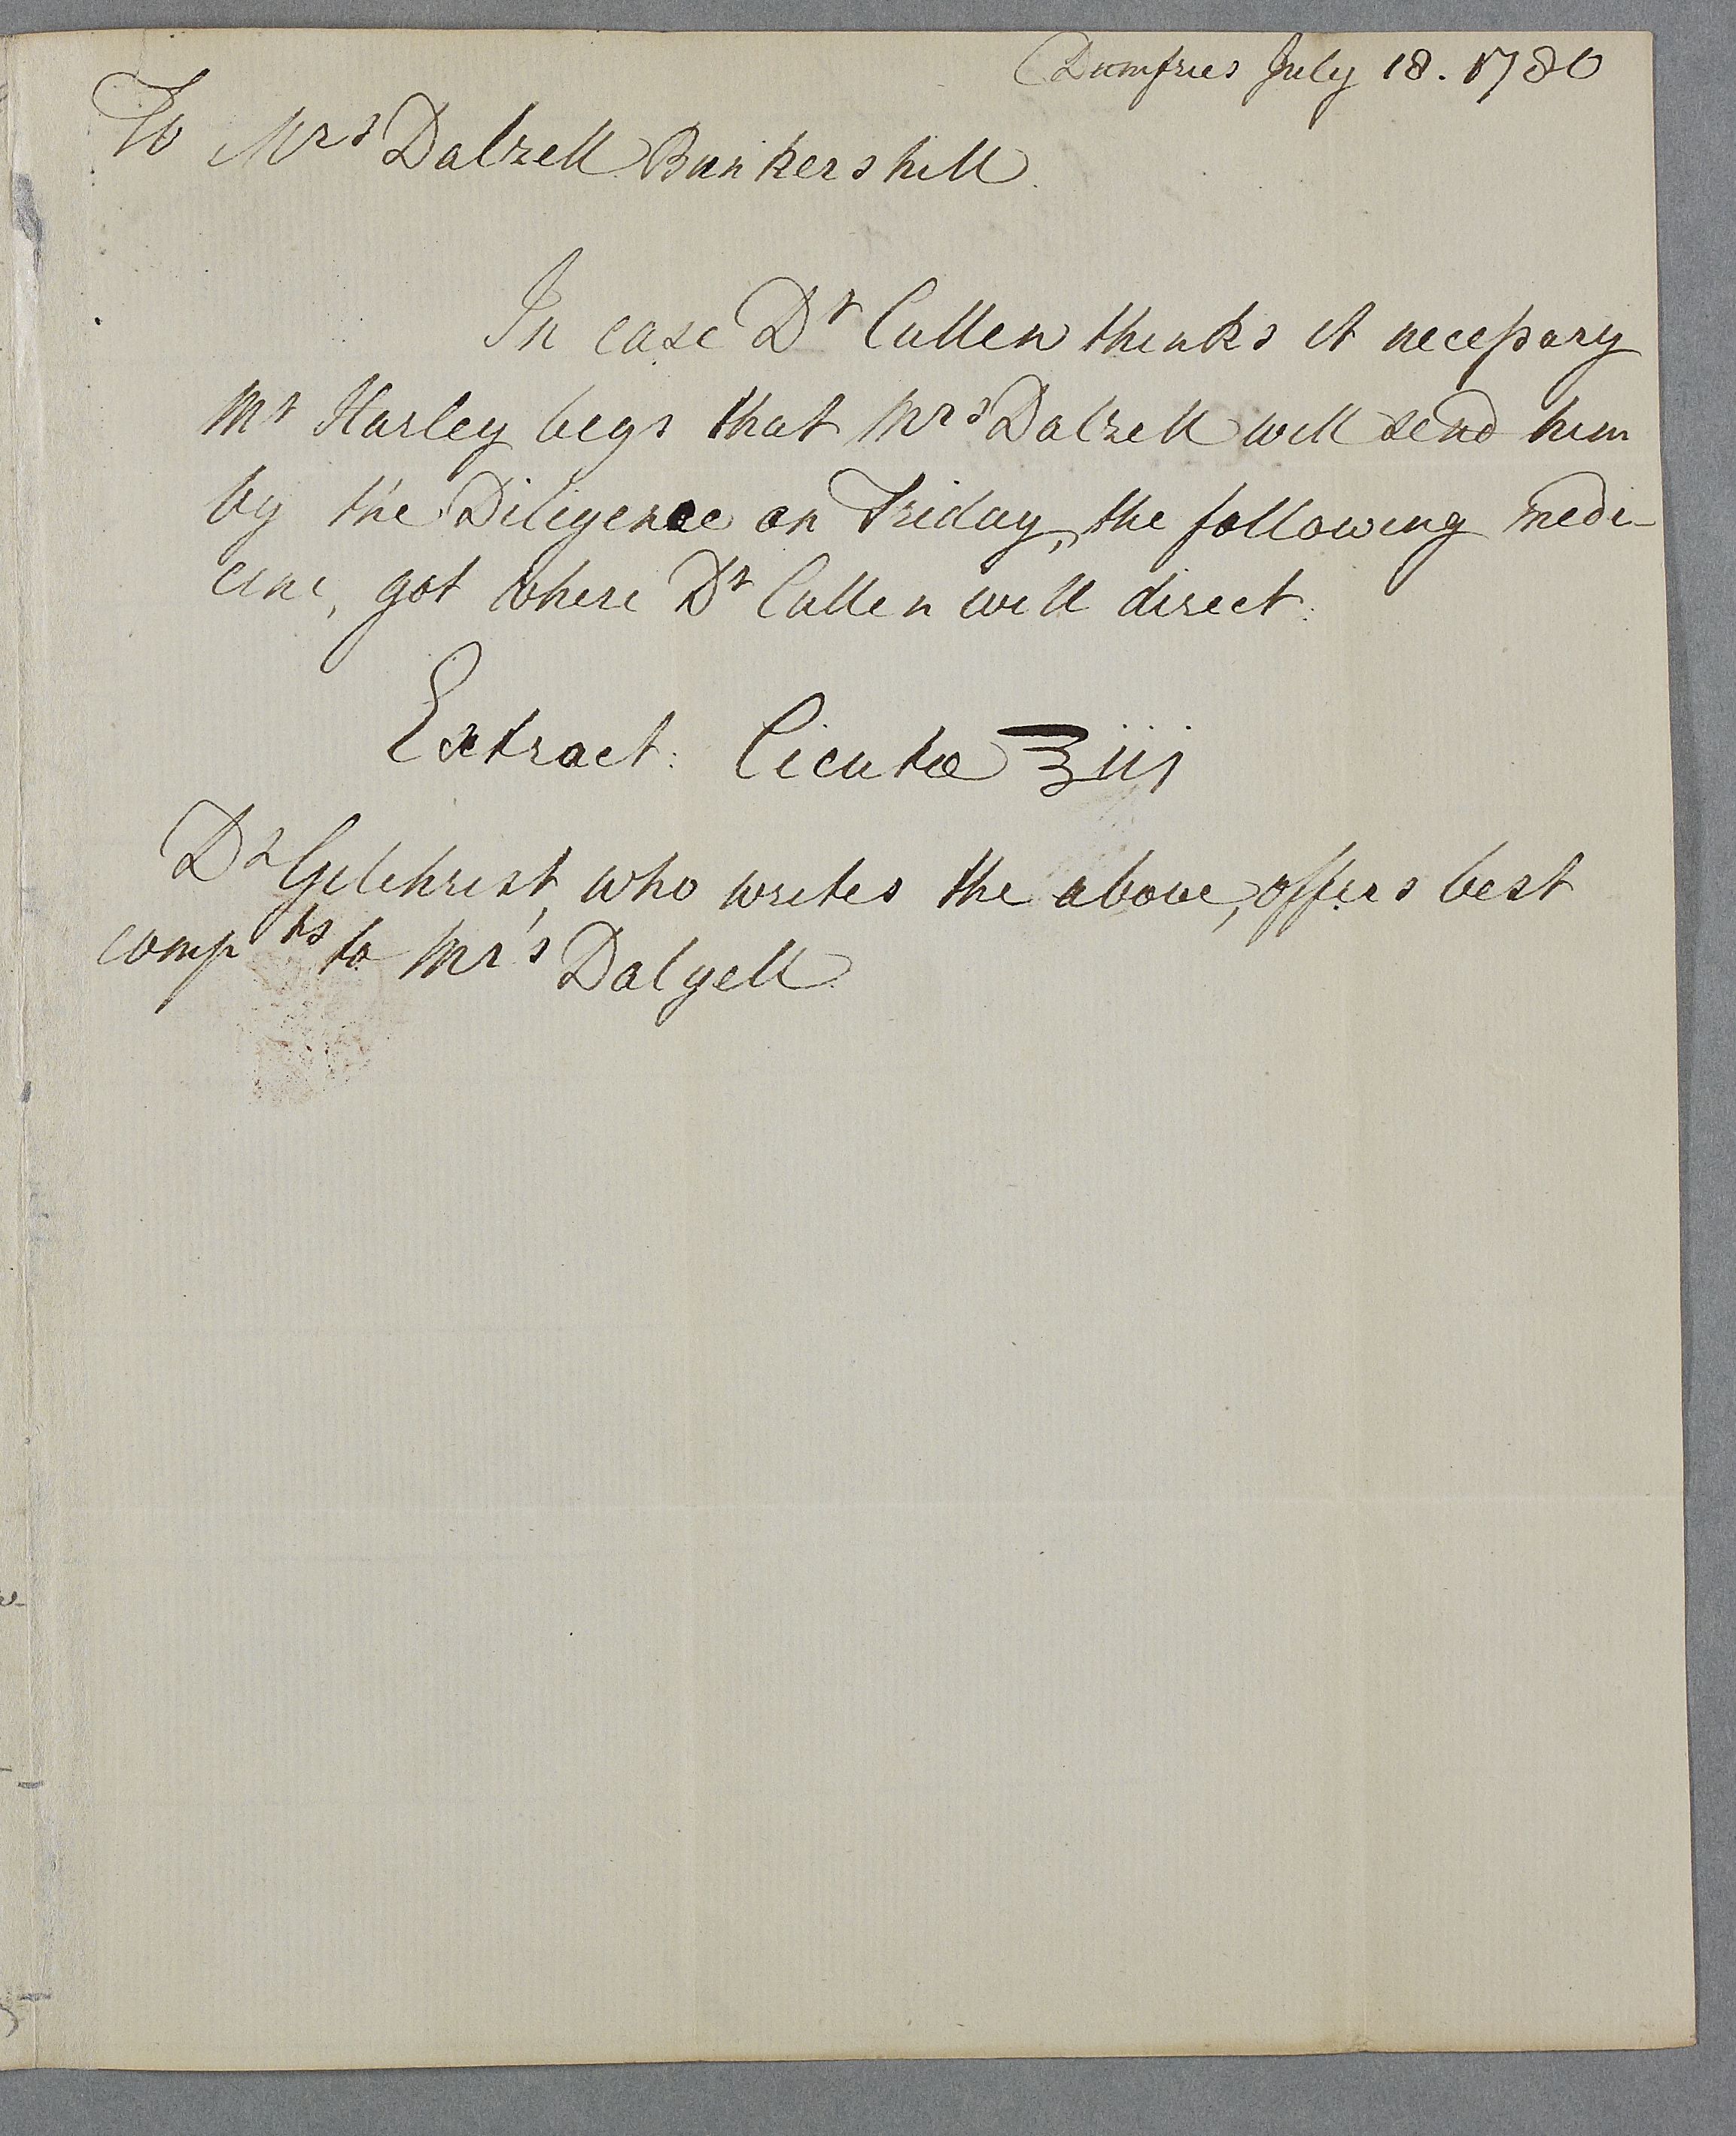 Dumfries July 18. 1780
To Mrs Dalzell Bunkershill.
In case Dr Cullen thinks it necessary
Mr Harley begs that Mrs Dalzell will send him
by the Diligence on Friday, the following medi-
cine, got where Dr Cullen will direct.
Extract: Cicutæ ℥iij
Dr Gilchrist, who writes the above, offers best
compts to Mrs Dalyell